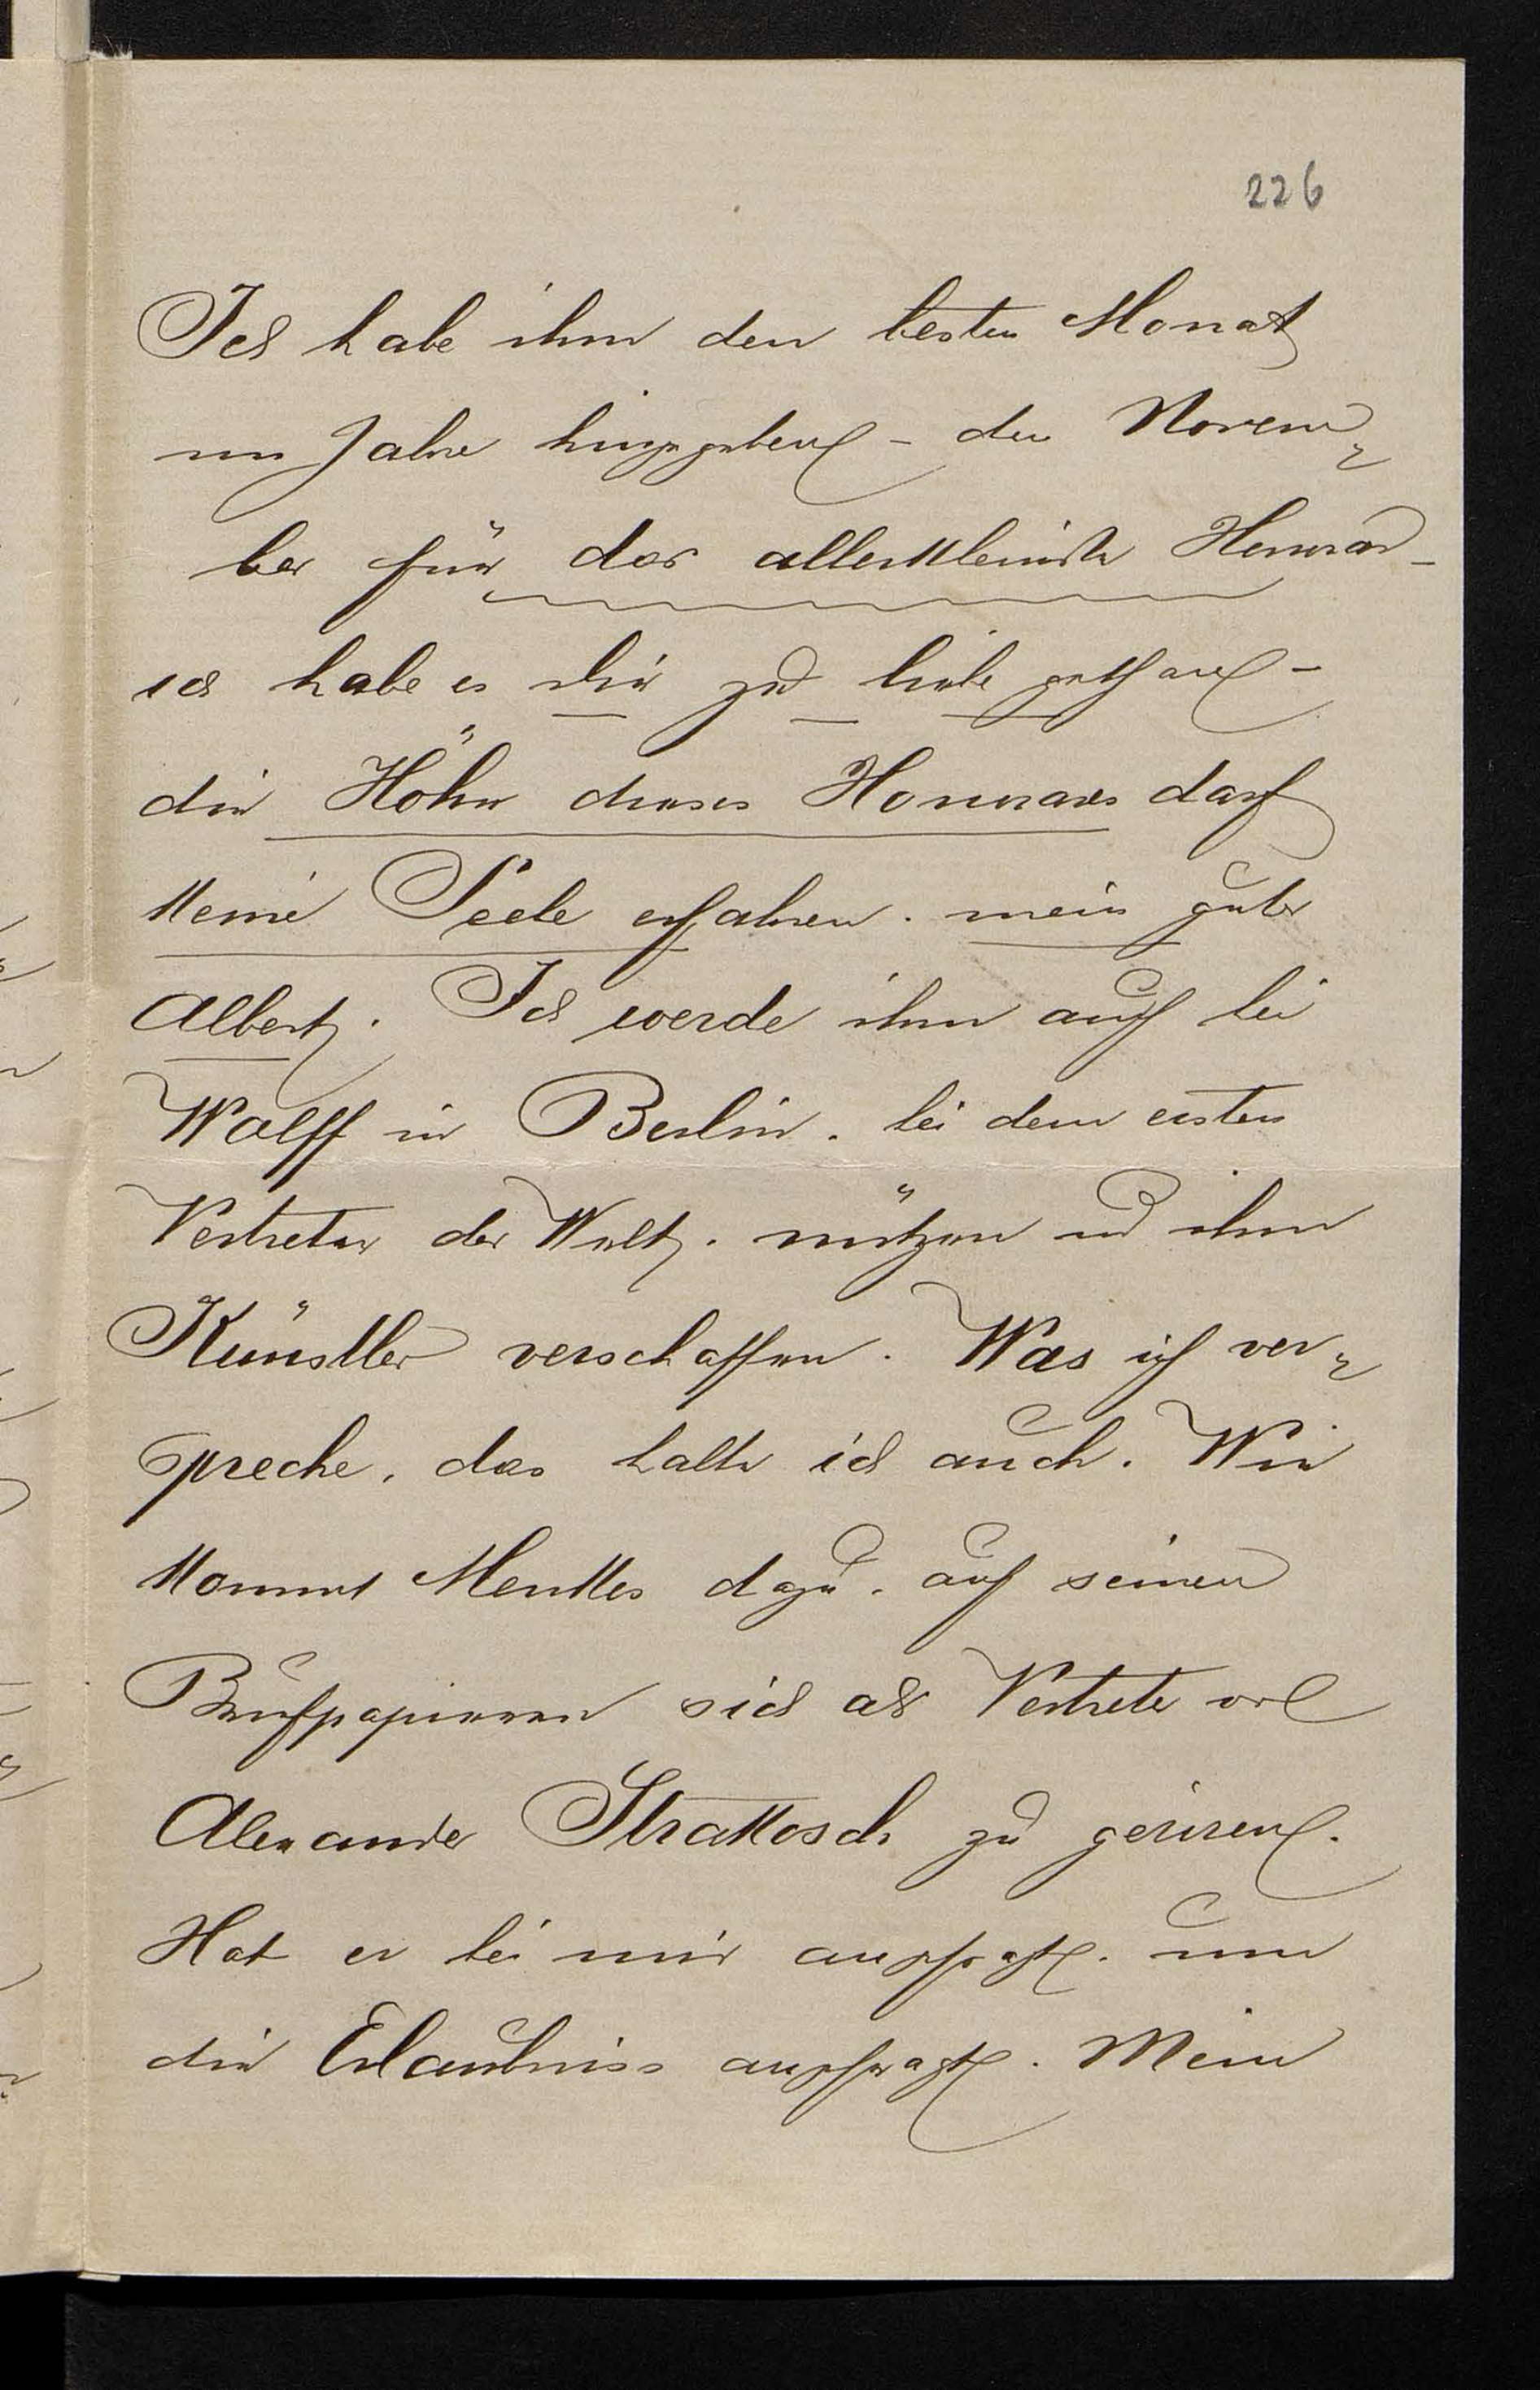 226
Ich habe ihm den besten Monat
im Jahre hingegeben – den Novem-
ber für das allerkleinste Honorar –
ich habe es dir zu liebe gethan –
die Höhe dieses Honorares darf
keine Seele erfahren. mein guter
Albert. Ich werde ihm auch bei
Wolff in Berlin. bei dem ersten
Vertreter der Welt. nützen und ihm
Künstler verschaffen. Was ich ver-
spreche. das halte ich auch. Wie
kommt Menkes dazu. auf seinen
Briefpapieren sich als Vertreter von
Alexander Strakosch zu geriren.
Hat er bei mir angefragt. um
die Erlaubniss angefragt. Mein